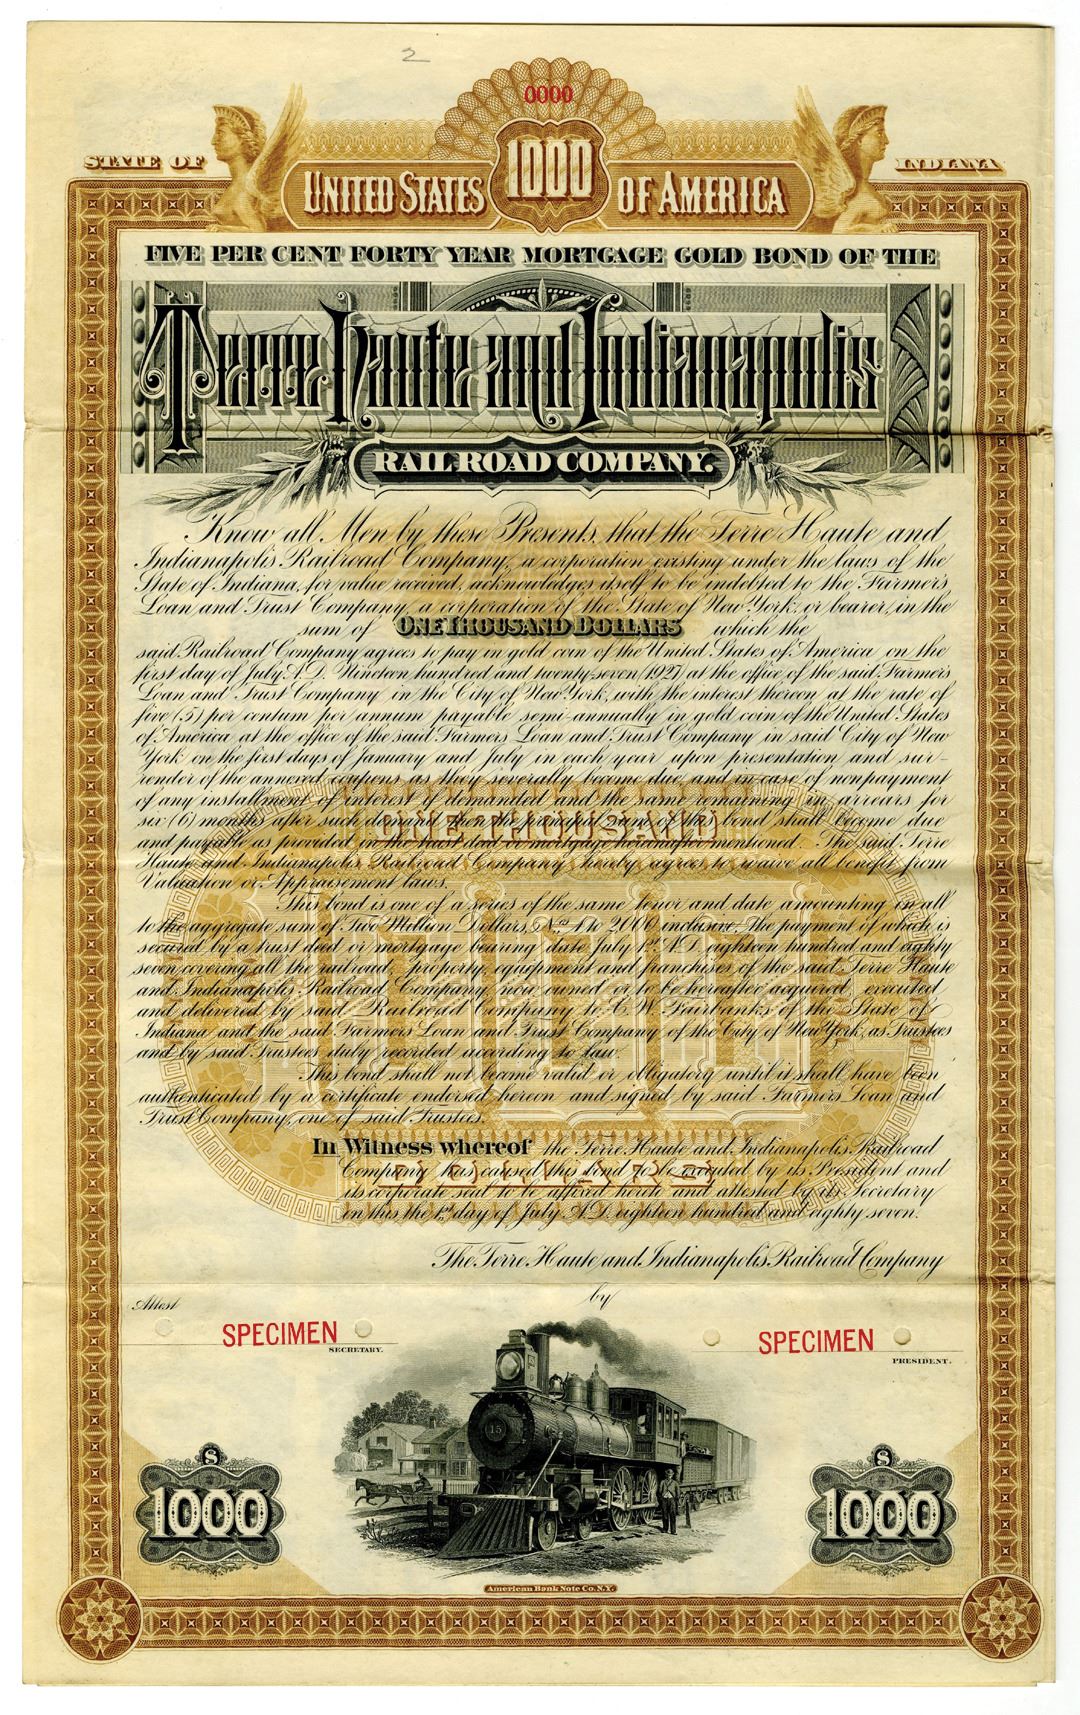 2
0000
STATE OF
INDIANA
1000
UNITED STATES OF AMERICA
FIVE PER CENT FORTY YEAR MORTGAGE GOLD BOND OF THE
Terre Haute and Indianapolis
RAILROAD COMPANY.
Know all Men by these Presents, that the Terre Haute and
Indianapolis Railroad Company, a corporation existing under the laws of the
State of Indiana, for value received, acknowledges itself to be indebted to the Farmers
Loan and Trust Company, a corporation of the State of New York, or bearer, in the
sum of ONE THOUSAND DOLLARS which the
said Railroad Company agrees to pay in gold coin of the United States of America on the
first day of July A.D. Nineteen hundred and twenty-seven (1927) at the office of the said Farmers
Loan and Trust Company in the City of New York, with the interest thereon at the rate of
five (5) per centum per annum payable semi-annually in gold coin of the United States
of America at the office of the said Farmers Loan and Trust Company in said City of New
York on the first days of January and July in each year upon presentation and sur-
render of the annexed coupons as they severally become due and in case of nonpayment
of any installment of interest if demanded and the same remaining in arrears for
six (6) months after such demand then the principal sum of this bond shall become due
and payable as provided in the trust deed or mortgage hereinafter mentioned. The said Terre
Haute and Indianapolis Railroad Company hereby agrees to waive all benefit from
Valuation or Appraisement laws.
This bond is one of a series of the same tenor and date amounting in all
to the aggregate sum of Two Million Dollars, Nos. 1 to 2000 inclusive, the payment of which is
secured by a trust deed or mortgage bearing date July 1st A.D. eighteen hundred and eighty
seven, covering all the railroad, property, equipment and franchises of the said Terre Haute
and Indianapolis Railroad Company now owned or to be hereafter acquired, executed
and delivered by said Railroad Company to C. W. Fairbanks of the State of
Indiana and the said Farmers Loan and Trust Company of the City of New York, as Trustees
and by said Trustees duly recorded according to law.
This bond shall not become valid or obligatory until it shall have been
authenticated by a certificate endorsed hereon and signed by said Farmers Loan and
Trust Company, one of said Trustees.
In Witness whereof the Terre Haute and Indianapolis Railroad
Company has caused this bond to be executed by its President and
its corporate seal to be affixed hereto and attested by its Secretary
on this the 1st day of July A.D. eighteen hundred and eighty seven.
ONE THOUSAND
1000
DOLLARS
The Terre Haute and Indianapolis Railroad Company
Attest
by
SPECIMEN
SECRETARY.
SPECIMEN
PRESIDENT.
15
$
1000
$
1000
American Bank Note Co. N.Y.